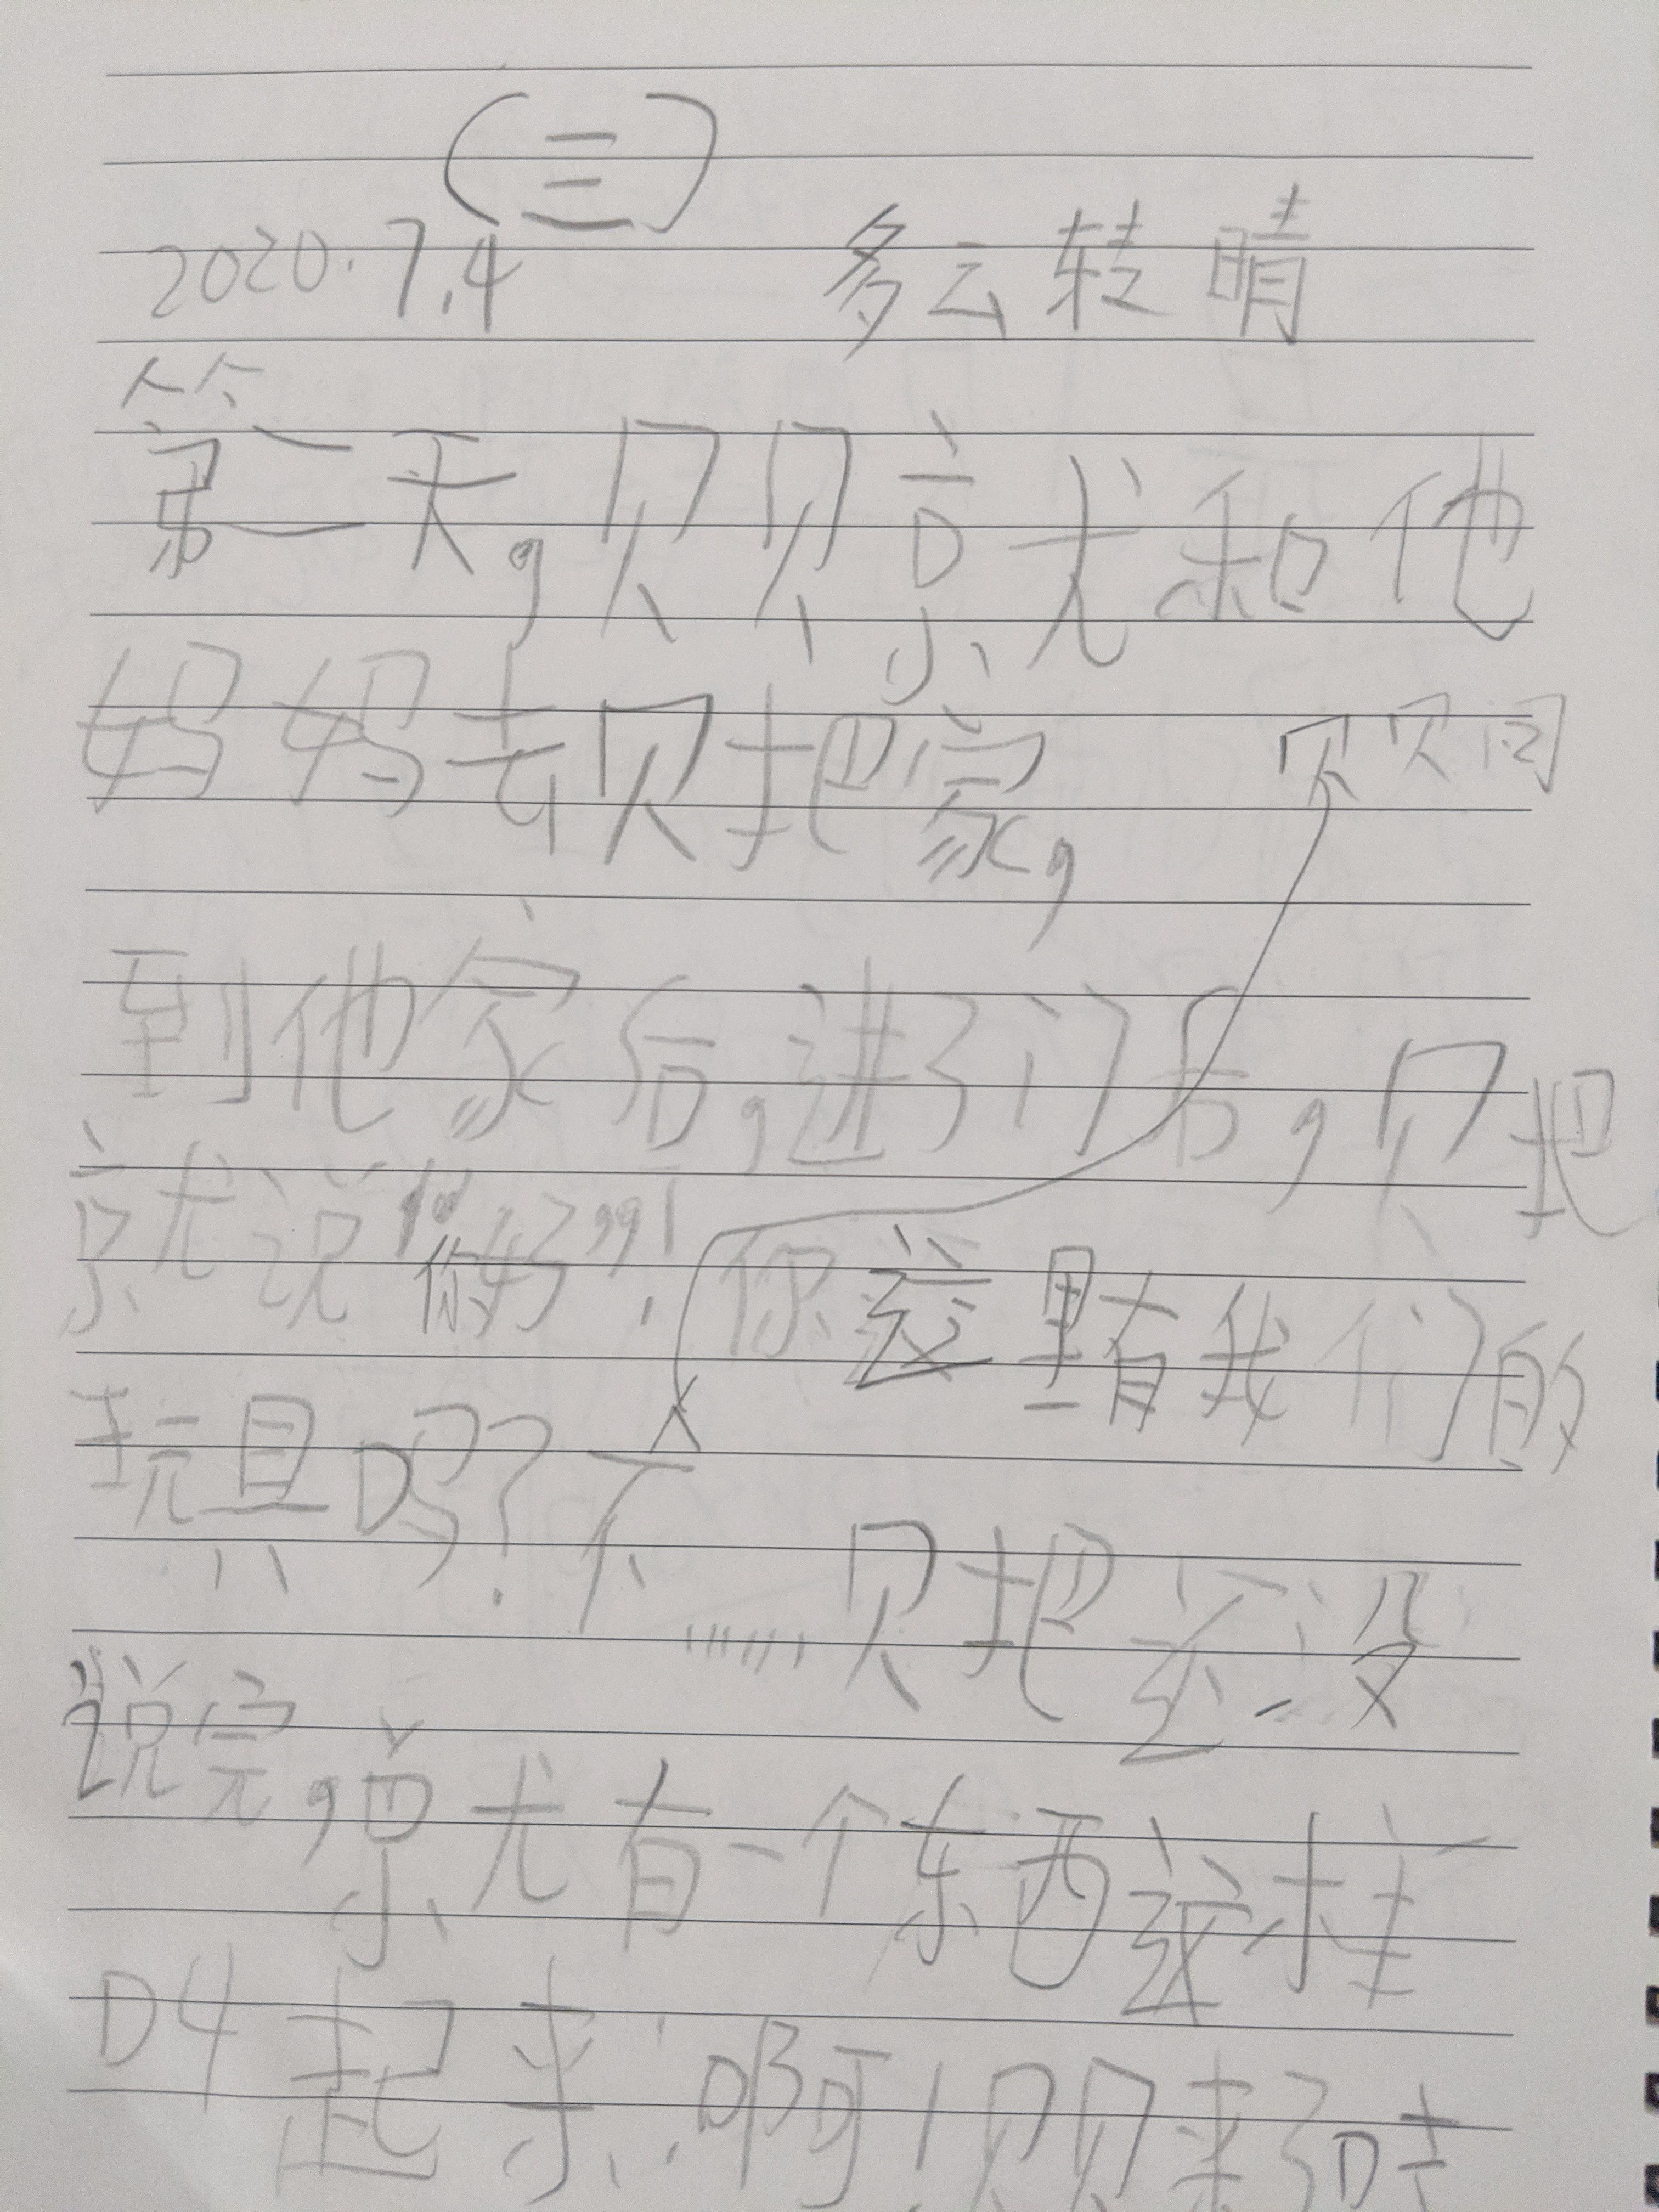 （三）
2020.7.4 多云转晴
第二天，贝贝就和他
妈妈去贝把家，
贝贝问
到他家后，进了门后，贝把
就说“你好”！你这里有我们的
玩具吗？不……贝把还没
说完，就有一个东西
叫起来：啊！贝贝来了